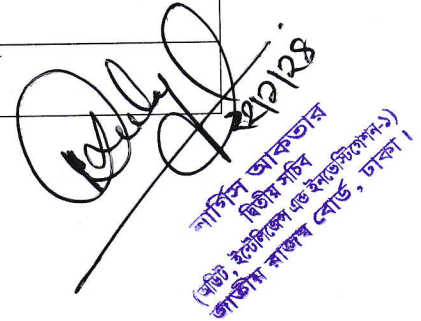 ২২/১/২৪
নার্গিস আকতার
দ্বিতীয় সচিব
(অডিট, ইন্টেলিজেন্স এন্ড ইনভেস্টিগেশন-১)
জাতীয় রাজস্ব বোর্ড, ঢাকা।